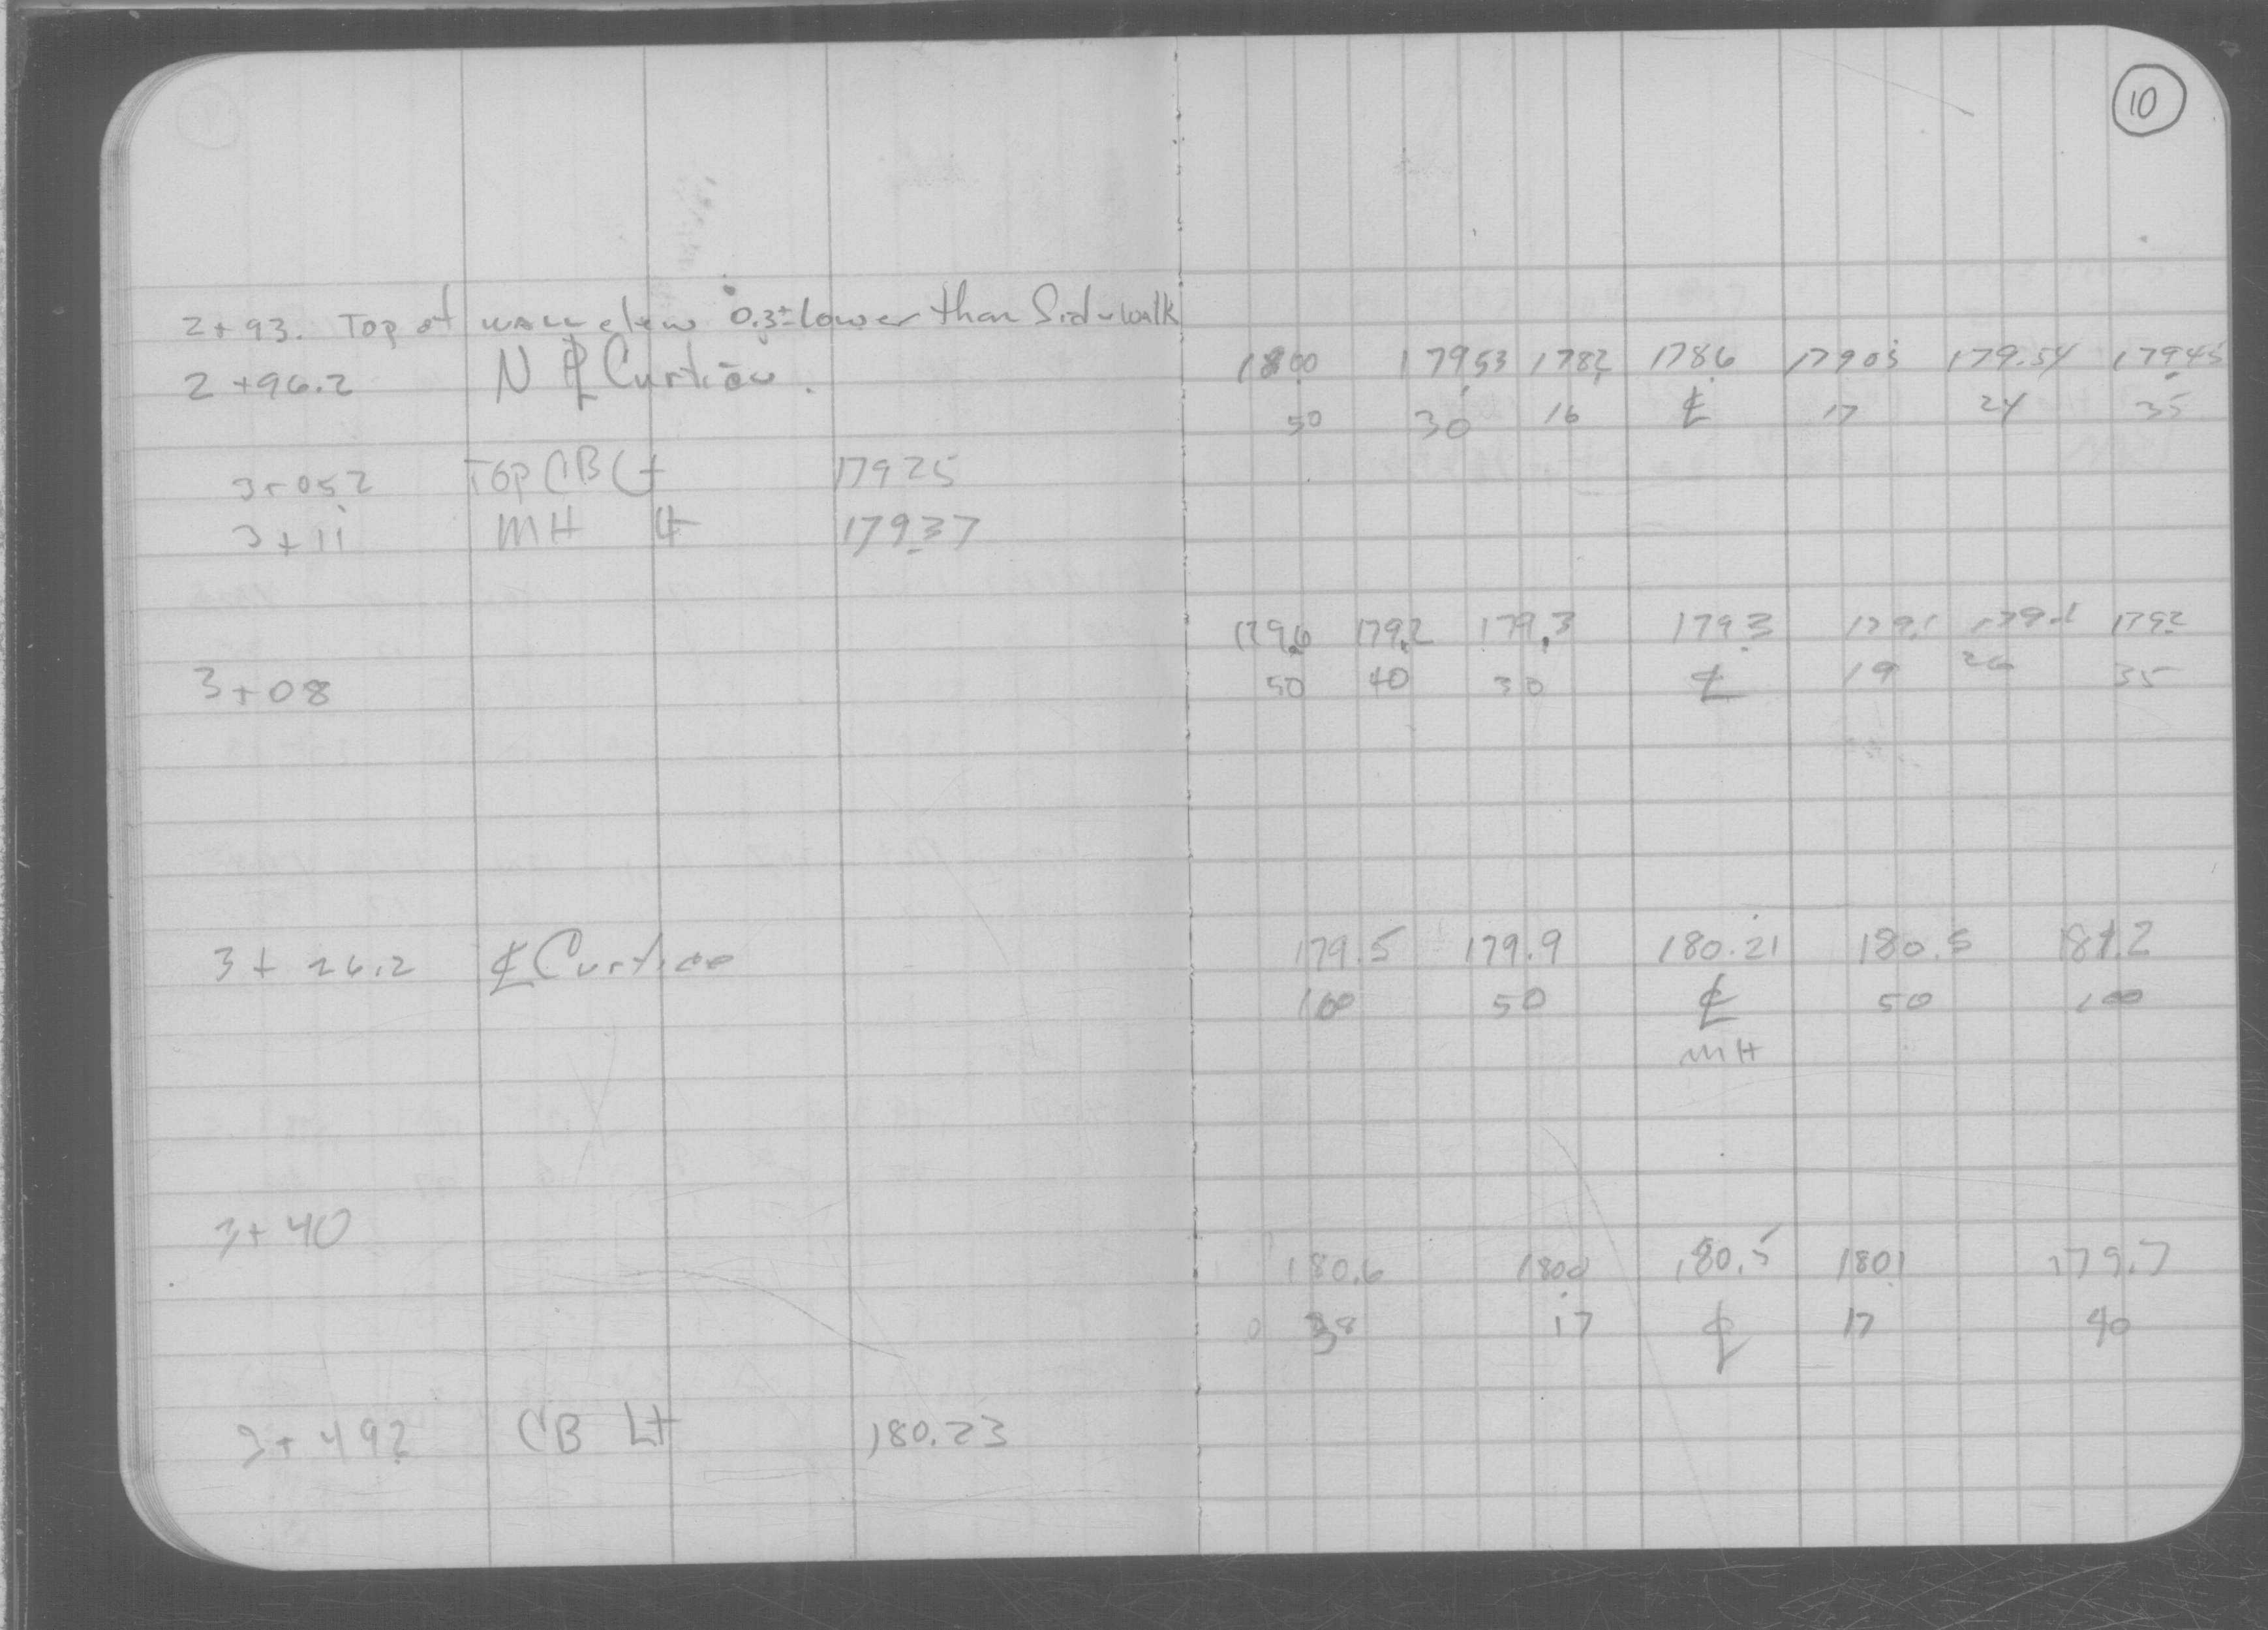 10
2+93. Top of wall elev 0.3± lower than Sidewalk
2+96.2 N ⅊ Curtice.
180.0 179.53 178.2 178.6 179.03 179.54 179.45
50 30 16 ℄ 17 24 35
3+05.2 Top CB Lt 179.25
3+11 MH Lt 179.37
179.6 179.2 179.3 179.3 179.1 179.1 179.2
3+08 50 40 30 ℄ 19 26 35
3+26.2 ℄ Curtice 179.5 179.9 180.21 180.5 181.2
100 50 ℄ 50 100
MH
3+40
180.6 180.0 180.5 180.1 179.7
38 17 ℄ 17 40
3+49.2 CB Lt 180.23